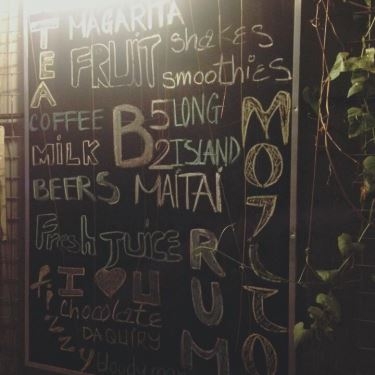 TEA
MAGARITA
FRUIT shakes
smoothies
COFFEE
MILK
BEERS
B52
LONG
ISLAND
MAITAI
MOJITO
Fresh JUICE
RUM
I ♥ U
fizzy
chocolate
DAQUIRY
bloody